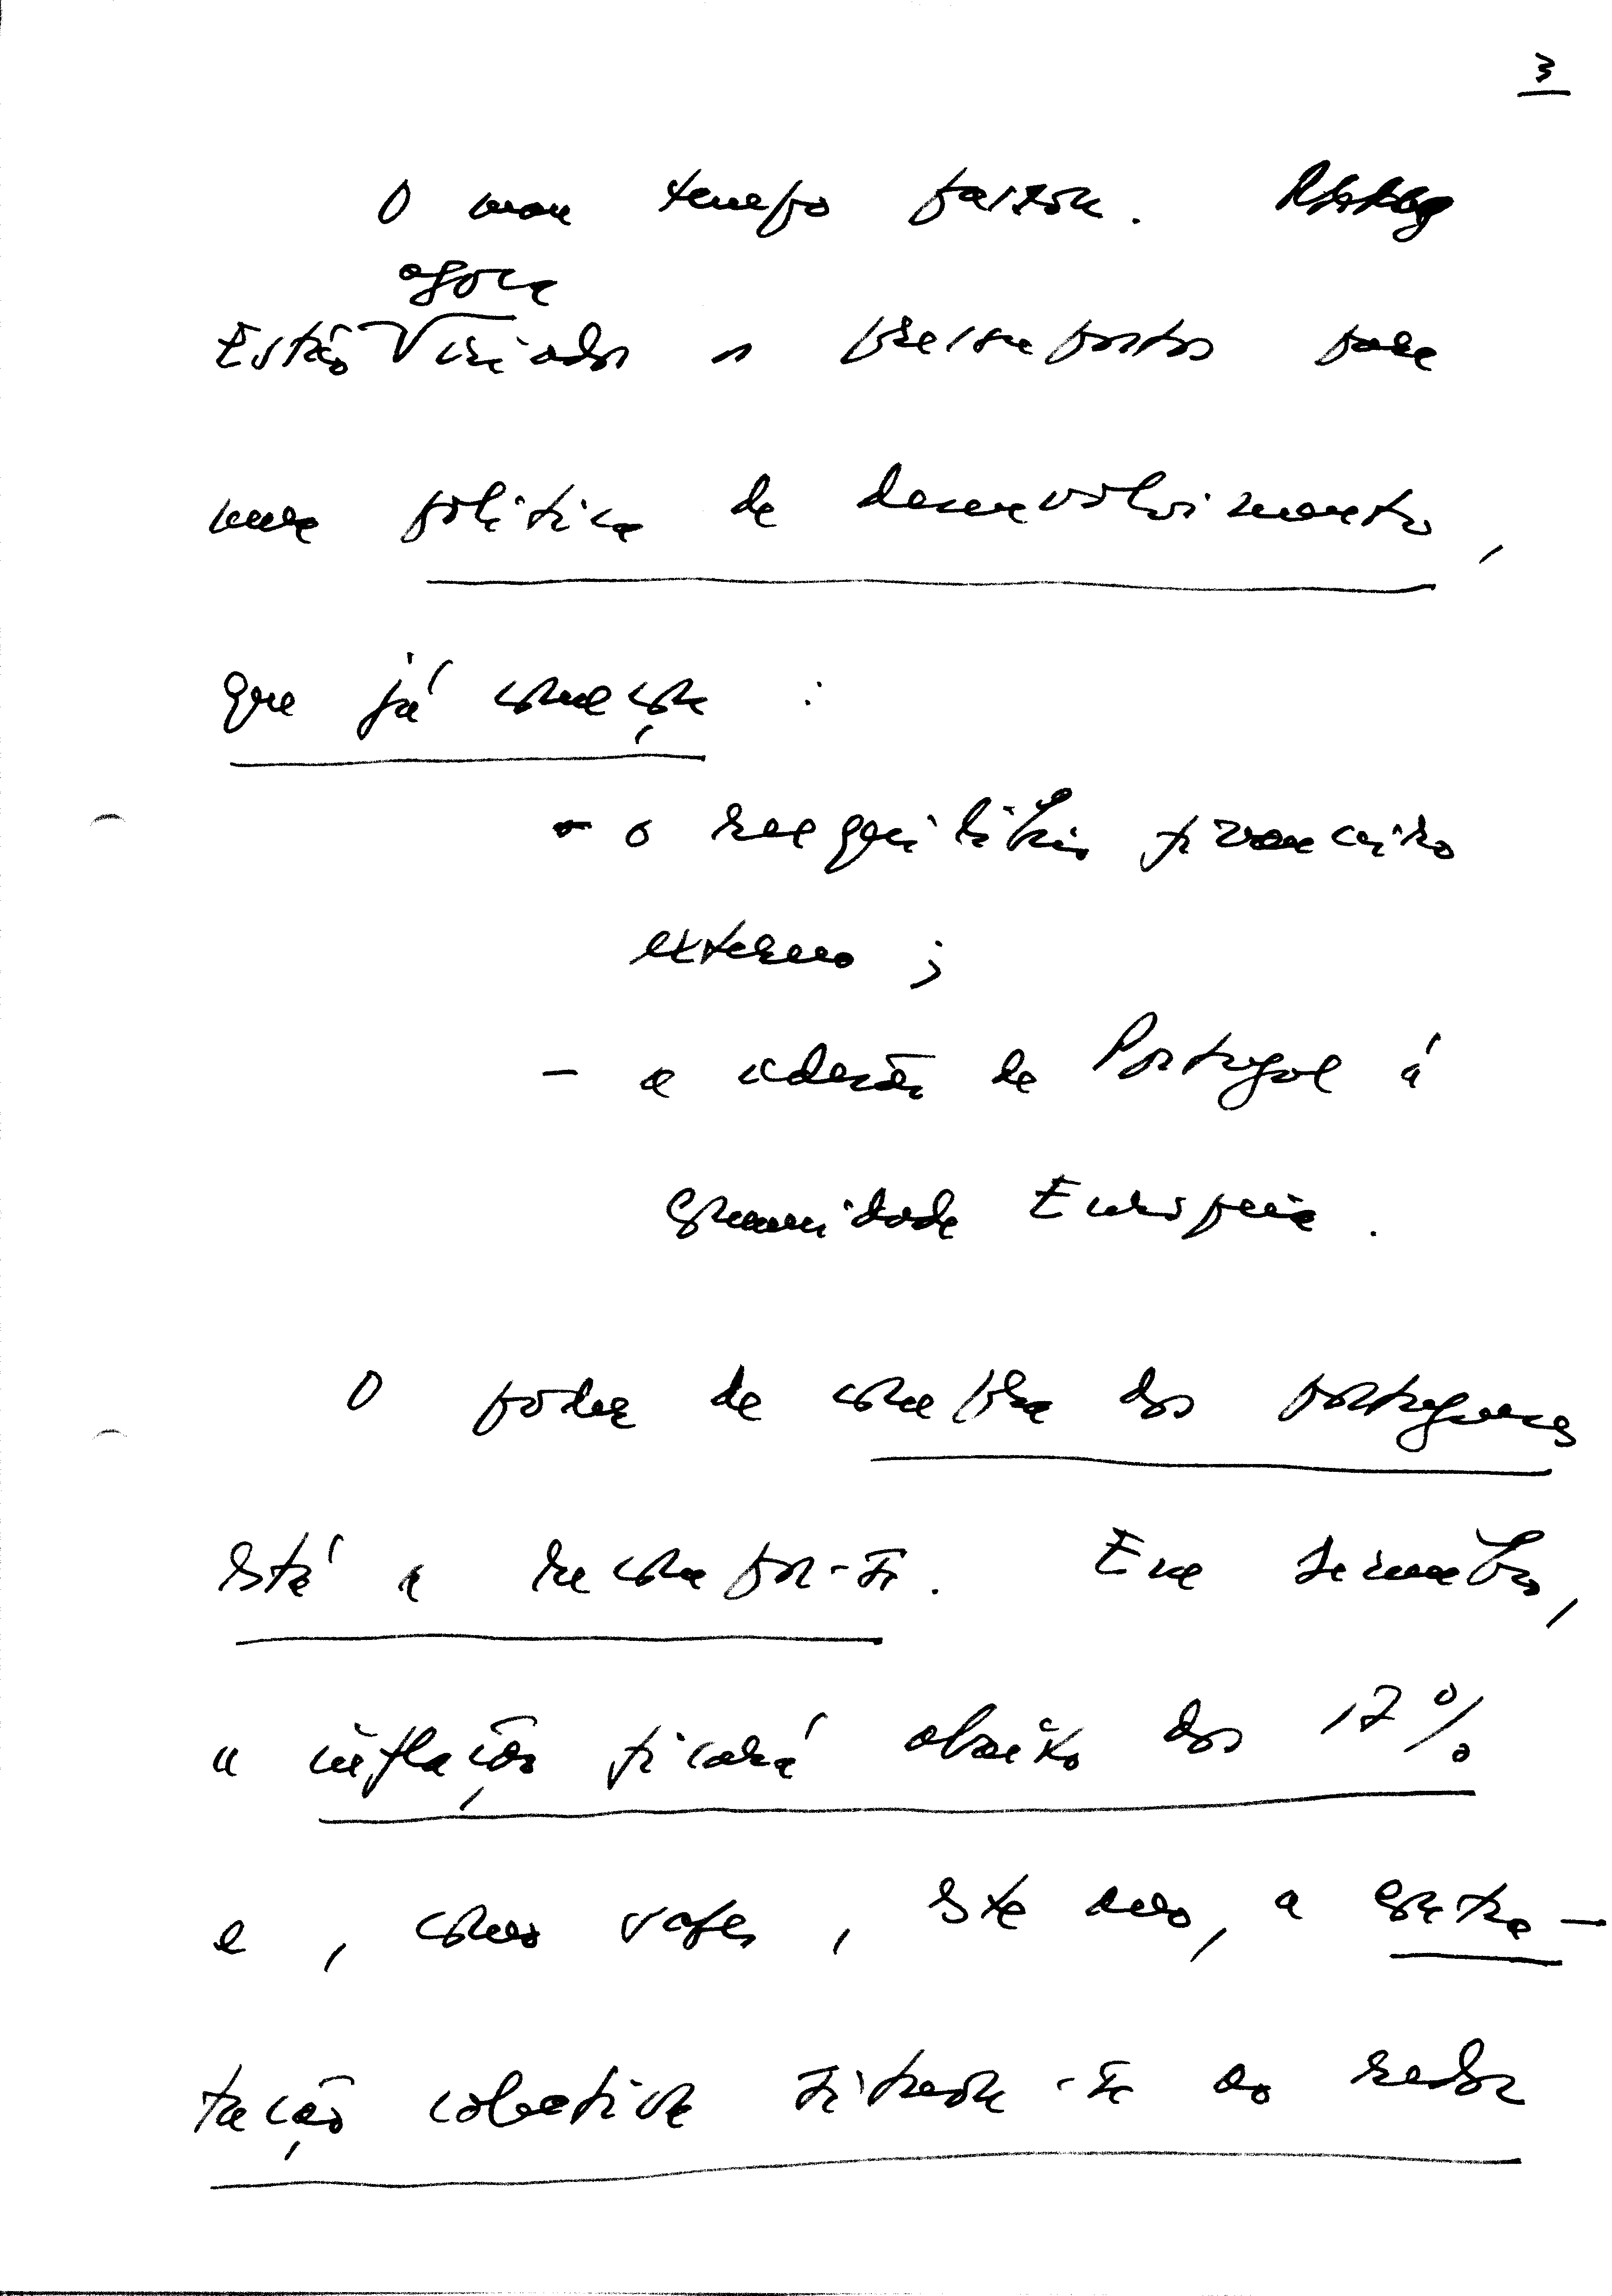 3
O mau tempo passou.
agora
Estão criados os pressupostos para
uma política de desenvolvimento,
que já começou :
- o reequilíbrio financeiro
externo ;
- a adesão de Portugal á
Comunidade Europeia .
O poder de compra dos portugueses
está a recompor-se. Em Dezembro,
a inflação ficará abaixo dos 17%
e , como sabem , este ano, a contra-
tação colectiva situou-se ao redor